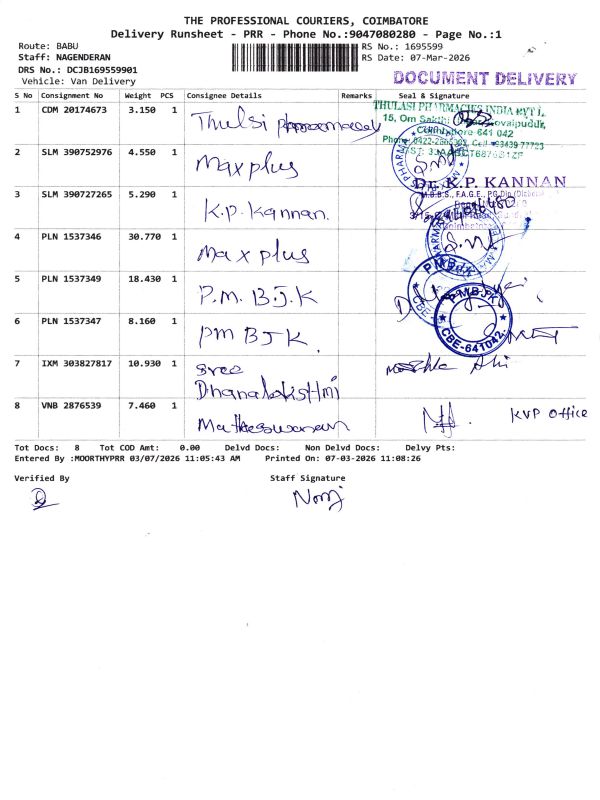 THE PROFESSIONAL COURIERS, COIMBATORE
Delivery Runsheet - PRR - Phone No.:9047080280 - Page No.:1
Route: BABU
RS No.: 1695599
Staff: NAGENDERAN
RS Date: 07-Mar-2026
DRS No.: DCJB169559901
Vehicle: Van Delivery
DOCUMENT DELIVERY
S No Consignment No Weight PCS Consignee Details Remarks Seal & Signature
1 CDM 20174673 3.150 1 Thulsi
THULASI PHARMACIES INDIA PVT L
15, Om Sakthi
641 042
2 SLM 390752976 4.550 1 Max plus
3 SLM 390727265 5.290 1 K.p. Kannan.
Dr. K.P. KANNAN
M.B.B.S., F.A.G.E.,
4 PLN 1537346 30.770 1 Max plus
5 PLN 1537349 18.430 1 P.M. B.J.K
6 PLN 1537347 8.160 1 PM BJK.
PMBJK
CBE-641042.
7 IXM 303827817 10.930 1 Sree
Dhanalakshmi
8 VNB 2876539 7.460 1 Matheeswaran
KVP Office
Tot Docs: 8 Tot COD Amt: 0.00 Delvd Docs: Non Delvd Docs: Delvy Pts:
Entered By :MOORTHYPRR 03/07/2026 11:05:43 AM Printed On: 07-03-2026 11:08:26
Verified By Staff Signature